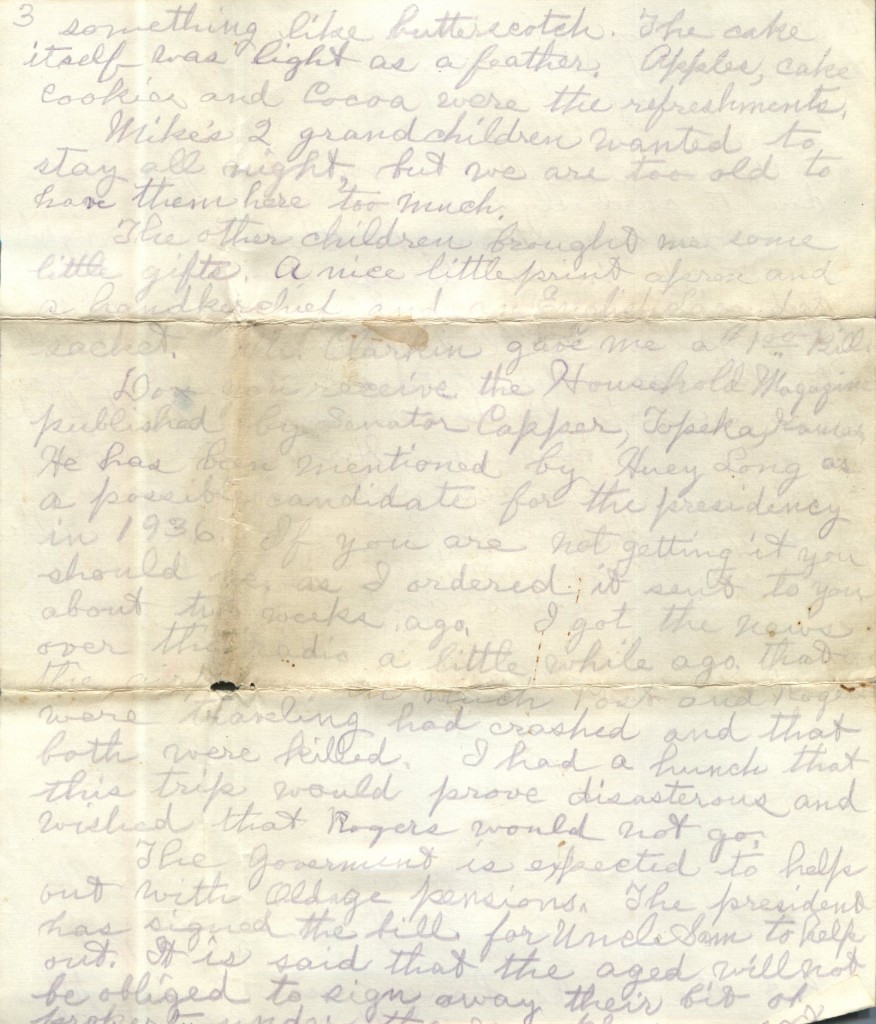 3
something like butterscotch. The cake
itself was light as a feather. Apples, cake
cookies, and Cocoa were the refreshments.
Mike's 2 grandchildren wanted to
stay all night, but we are too old to
have them here too much.
The other children brought me some
little gifts. A nice little print apron and
a handkerchief and
sachet. Clarkin gave me a 1.00 Bill.
Do you receive the Household Magazine
published by Senator Capper, Topeka, Kansas,
He has been mentioned by Huey Long as
a possible candidate for the presidency
in 1936. If you are not getting it you
should be, as I ordered it sent to you
about two weeks ago. I got the news
over the radio a little while ago that
the in which Post and Rogers
were traveling had crashed and that
both were killed. I had a hunch that
this trip would prove disasterous and
wished that Rogers would not go.
The Goverment is expected to help
out with Oldage pensions. The president
has signed the bill for Uncle Sam to help
out. It is said that the aged will not
be obliged to sign away their bit of
property under the